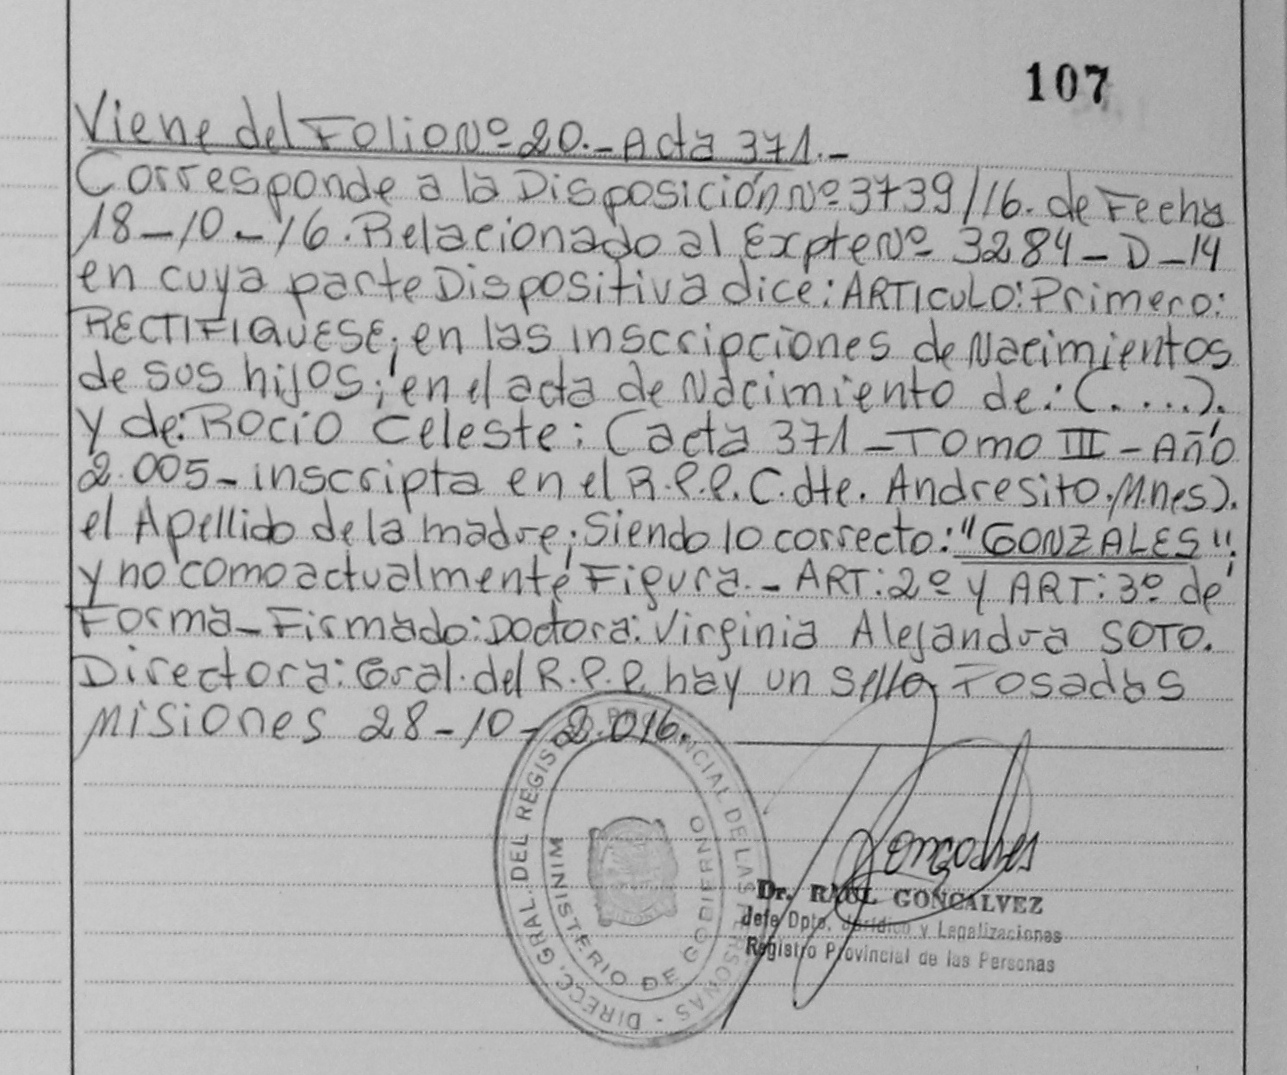 107
Viene del Folio Nº 20.- Acta 371.-
Corresponde a la Disposición Nº 3739/16. de Fecha
18-10-16. Relacionado al Expte Nº 3284-D-14
en cuya parte Dispositiva dice: ARTICULO: Primero:
RECTIFIQUESE; en las inscripciones de Nacimientos
de sus hijos; en el acta de Nacimiento de: (....).
y de: ROCIO Celeste: (acta 371-TOMO III-Año
2.005- inscripta en el R.P.P. C.dte. Andresito. Mnes).
el Apellido de la madre; Siendo lo correcto: "GONZALES".
y no como actualmente Figura.- ART: 2º y ART: 3º de
Forma- Firmado: Doctora: Virginia Alejandra SOTO.
Directora: Gral. del R.P.P. hay un sello Posadas
Misiones 28-10-2.016.
DIRECC. GRAL. DEL REGISTRO PROVINCIAL DE LAS PERSONAS -
MINISTERIO DE GOBIERNO
Dr. RAUL GONCALVEZ
Jefe Dpto. Jurídico y Legalizaciones
Registro Provincial de las Personas